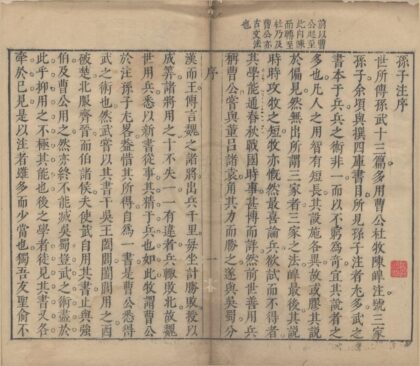 前以曹
公起至
此
至
杜乃及
曹公亦
古文法
也
孫子注序
世所傳孫武十三篇多用曹公杜牧陳皥注號三家
孫子余頃與撰四庫書目所見孫子注者尤多武之
書本于兵兵之術非一而以不窮爲奇宜其說者之
多也凡人之用智有短長其設施各異故或膠其說
於偏見然無出所謂三家者三家之注皥最後其說
時時攻牧之短牧亦慨然最喜論兵欲試而不得者
其學能通春秋戰國時事甚博而詳然前世善用兵
稱曹公嘗與董呂諸袁角其力而勝之遂與吳蜀分
序
一
漢而王傳言魏之諸將出兵千里每坐計勝敗授以
成筭諸將用之十不失一一有違者兵輒敗北故魏
世用兵悉以新書從事其精于兵也如此牧謂曹公
於注孫子尤畧蓋惜其所得自爲一書是曹公悉得
武之術也然武嘗以其書干吳王闔閭闔閭用之西
破楚北服齊晉而伯諸侯夫使武自用其書止與強
伯及曹公用之然亦終不能滅吳蜀豈武之術盡於
此乎抑用之不極其能也後之學者徒見其書又各
牽於己見是以注者雖多而少當也獨吾友聖俞不